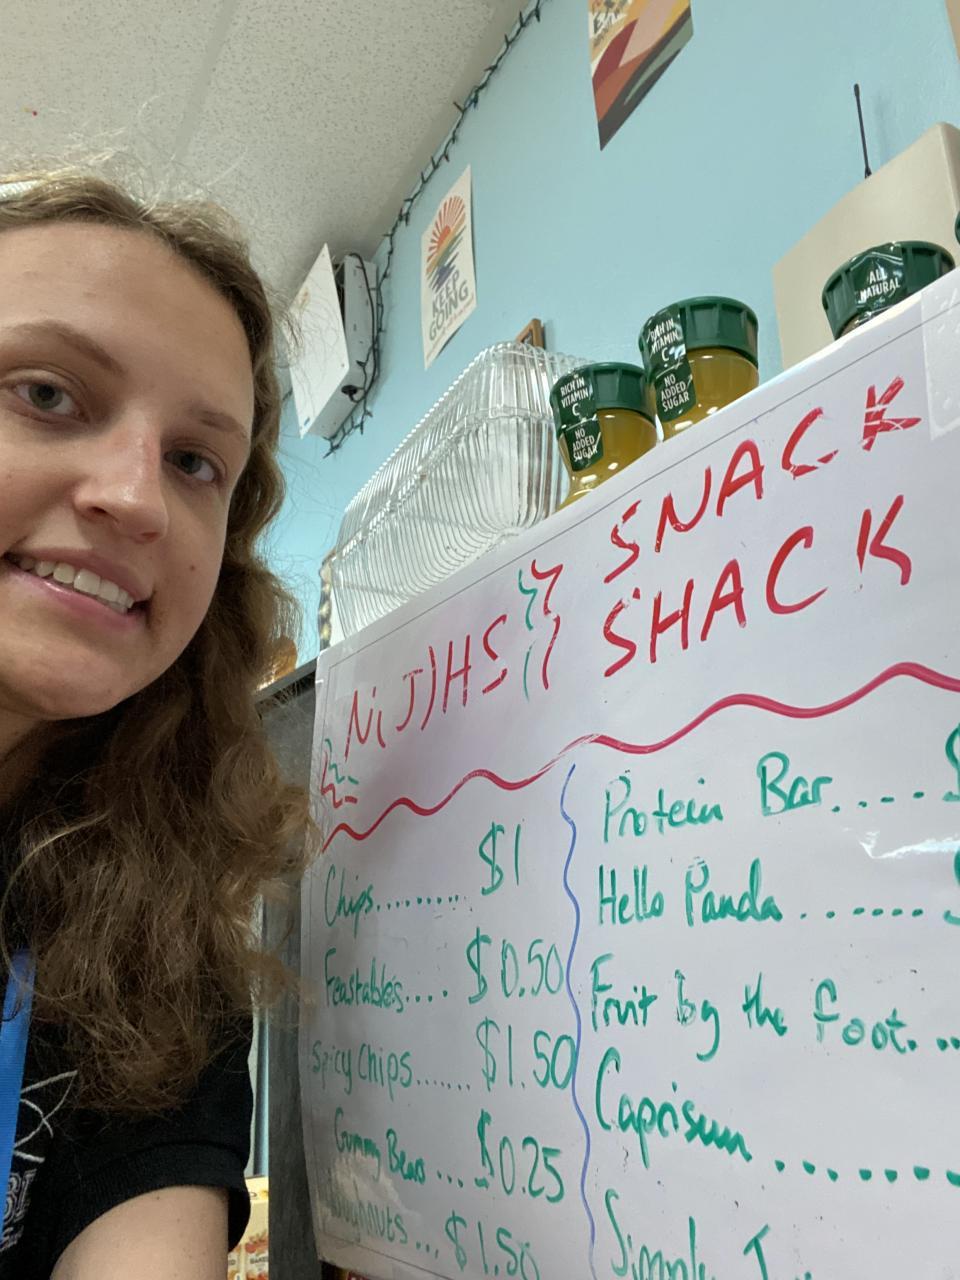 KEEP
GOING
ALL
NATURAL
RICH IN
VITAMIN
C
NO
ADDED
SUGAR
RICH IN
VITAMIN
C
NO
ADDED
SUGAR
N(J)HS
SNACK
SHACK
Chips......... $1
Feastables.... $0.50
Spicy Chips....... $1.50
Gummy Bears .... $0.25
... $1.50
Protein Bar..... $
Hello Panda .......
Fruit by the foot...
Caprisun ........
Simply